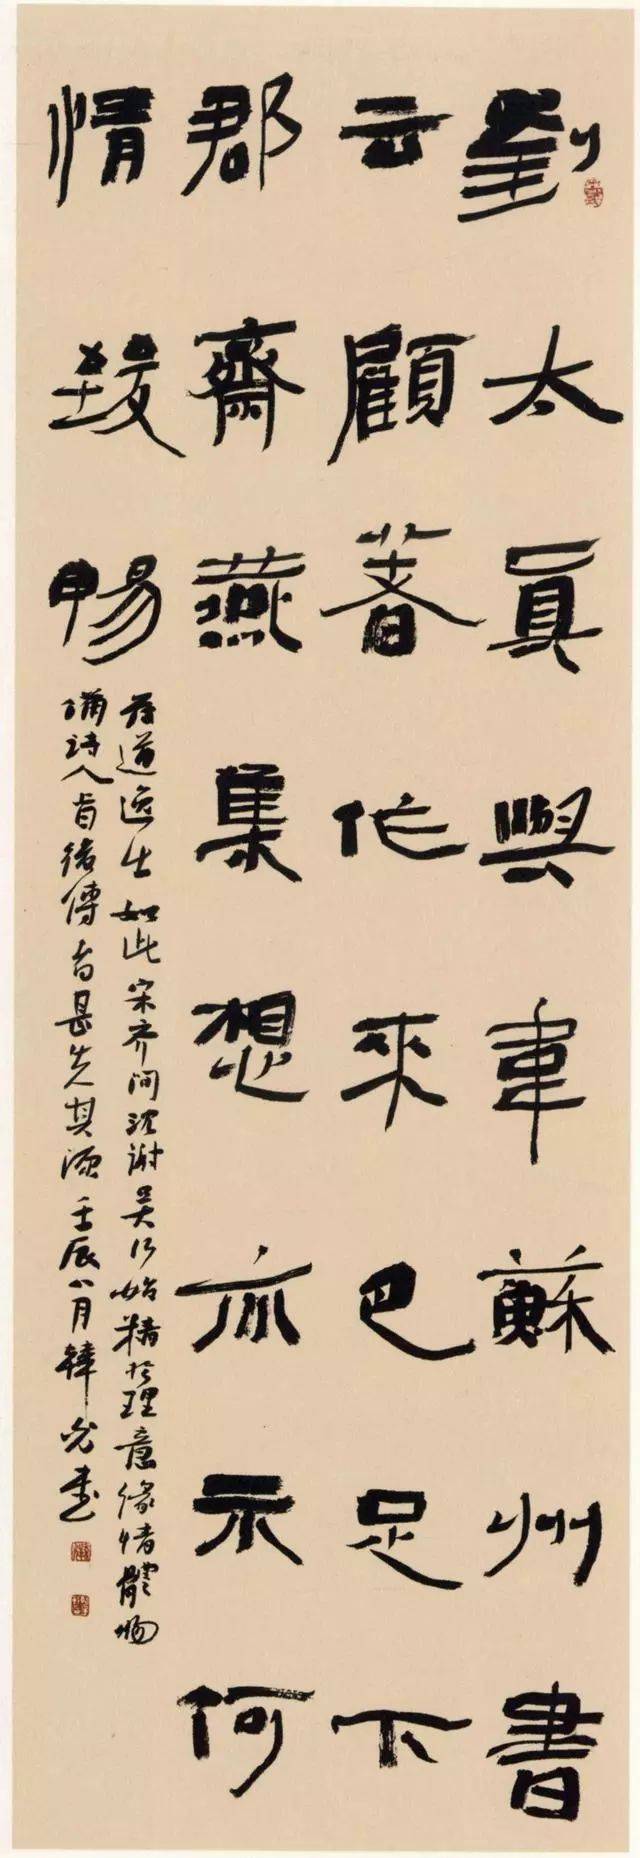 劉太真與韋蘇州書
云顧著作來㠯足下
郡齋燕集想亦示何
情致暢
茂遒逸如此宋齊間沈謝吴何始精於理意緣情體物
備詩人旨後傳者甚失其源壬辰八月韓書